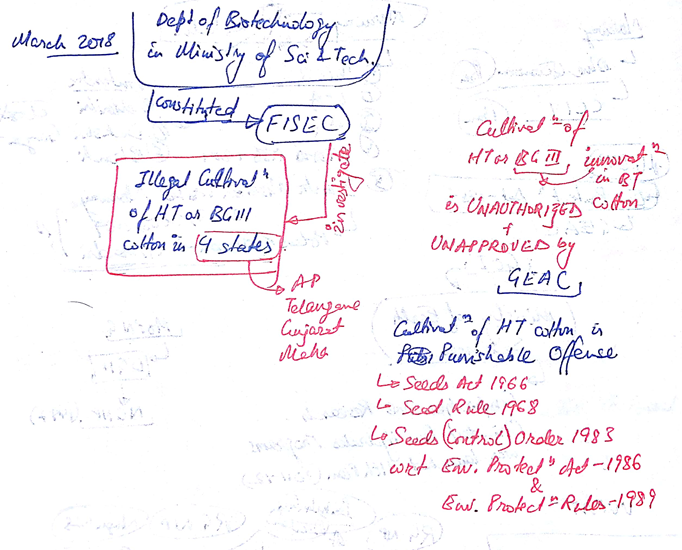 March 2018
Dept of Biotechnology
in Ministry of Sci & Tech.
constituted
FISEC
investigate
Illegal Cultivatⁿ
of HT or BG III
cotton in 4 states
AP
Telangana
Gujarat
Maha
Cultivatⁿ of
HT or BG III, innovatⁿ
in BT
cotton
is UNAUTHORIZED
&
UNAPPROVED by
GEAC
Cultivatⁿ of HT cotton is
Punishable Offense
↳ Seeds Act 1966
↳ Seed Rule 1968
↳ Seeds (Control) Order 1983
wrt Env. Protectⁿ Act - 1986
&
Env. Protectⁿ Rules - 1989